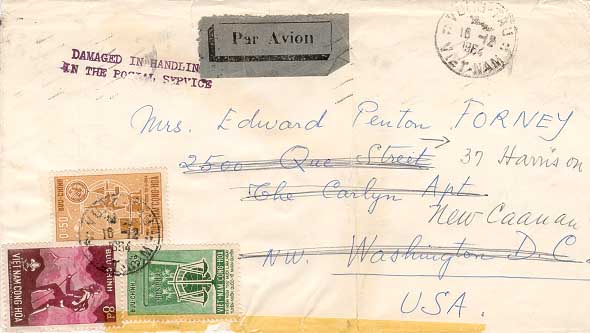 DAMAGED IN HANDLING
IN THE POSTAL SERVICE
Par Avion
16-12
1964
VIET-NAM
Mrs. Edward Penton FORNEY
2500 Que Street
37 Harrison
The Carlyn Apt.
New Caanan
NW. Washington D.C.
U.S.A.
BUU-CHINH
0đ50
16-12
1964
VIỆT NAM CỘNG-HÒA
BƯU CHÍNH
8đ
BƯU-CHÍNH
VIỆT-NAM CỘNG-HÒA